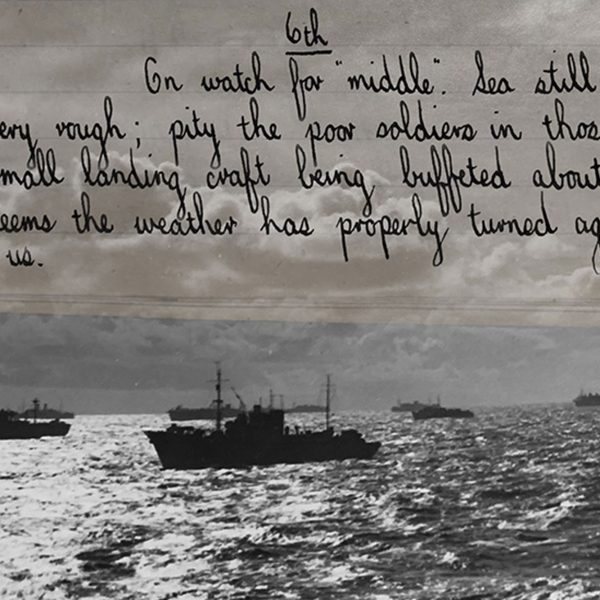 6th
On watch for "middle". Sea still
ery rough; pity the poor soldiers in thos
mall landing craft being buffeted about
eems the weather has properly turned ag
us.